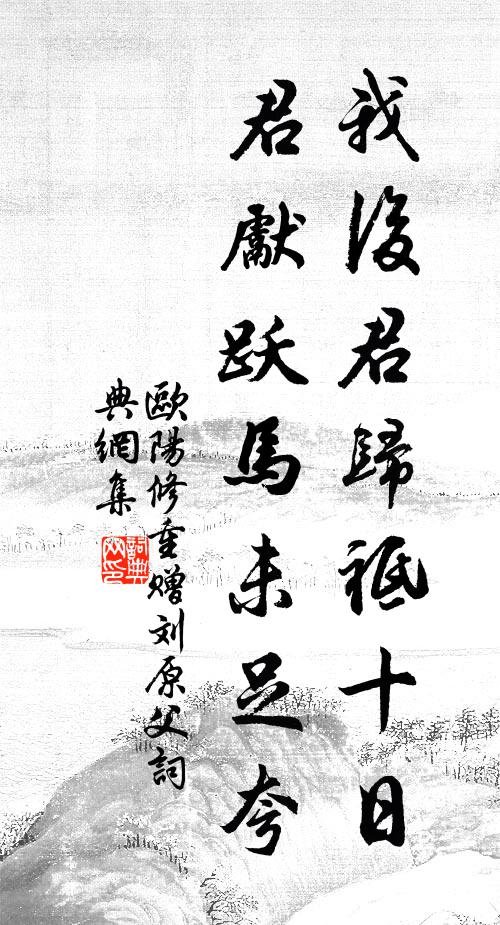 我後君歸祗十日
君獻跃馬未足夸
歐陽修重赠刘原父詞
典網集
詞典
网印